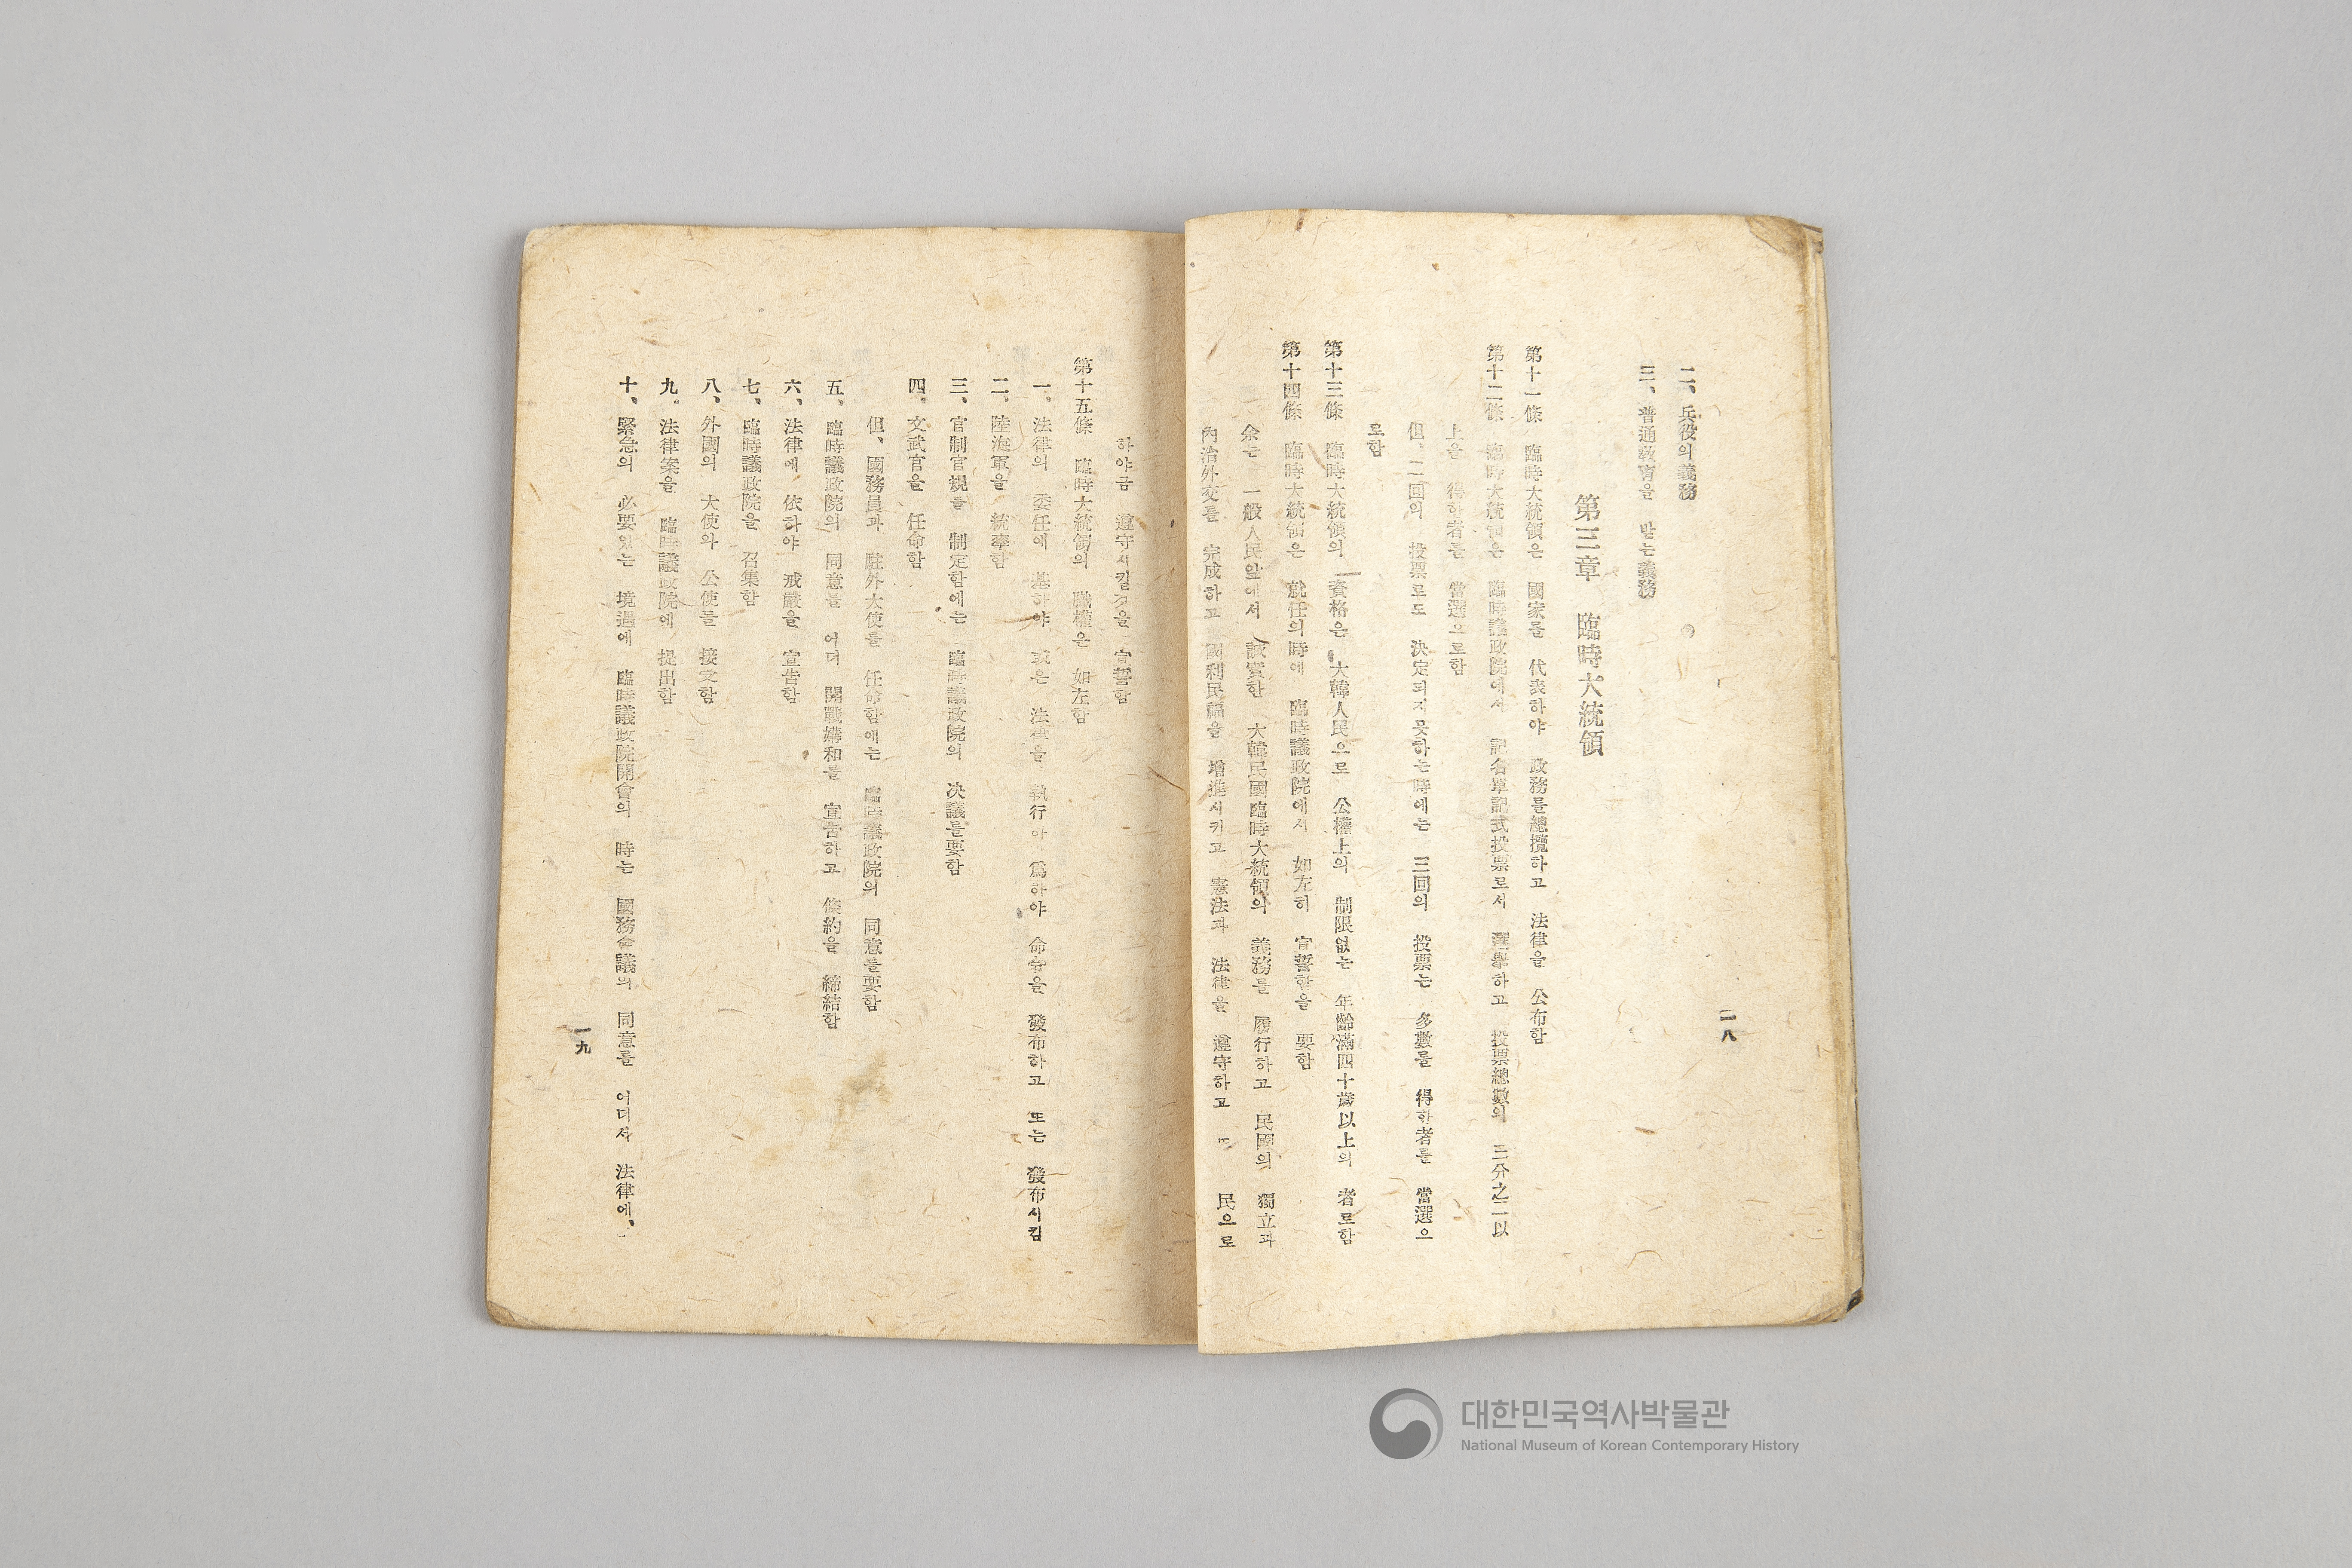 二、兵役의 義務
三、普通敎育을 받는 義務
第三章 臨時大統領
第十一條 臨時大統領은 國家를 代表하야 政務를總攬하고 法律을 公布함
第十二條 臨時大統領은 臨時議政院에서 記名單記式投票로서 選擧하고 投票總數의 三分之二以
上을 得한者를 當選으로함
但、二回의 投票로도 決定되지못하는時에는 三回의 投票는 多數를 得한者를 當選으
로함
第十三條 臨時大統領의 資格은 大韓人民으로 公權上의 制限없는 年齡滿四十歲以上의 者로함
第十四條 臨時大統領은 就任의時에 臨時議政院에서 如左히 宣誓함을 要함
余는 一般人民앞에서 誠實한 大韓民國臨時大統領의 義務를 履行하고 民國의 獨立과
內治外交를 完成하고 國利民福을 增進시키고 憲法과 法律을 遵守하고 또 民으로
一八
하야금 遵守시킬것을 宣誓함
第十五條 臨時大統領의 職權은 如左함
一、法律의 委任에 基하야 或은 法律을 執行하기 爲하야 命令을 發布하고 또는 發布시킴
二、陸海軍을 統率함
三、官制官規를 制定함에는 臨時議政院의 決議를要함
四、文武官을 任命함
但、國務員과 駐外大使를 任命함에는 臨時議政院의 同意를要함
五、臨時議政院의 同意를 어더 開戰媾和를 宣告하고 條約을 締結함
六、法律에 依하야 戒嚴을 宣告함
七、臨時議政院을 召集함
八、外國의 大使와 公使를 接受함
九、法律案을 臨時議政院에 提出함
十、緊急의 必要있는 境遇에 臨時議政院開會의 時는 國務會議의 同意를 어더서 法律에、
一九
대한민국역사박물관
National Museum of Korean Contemporary History